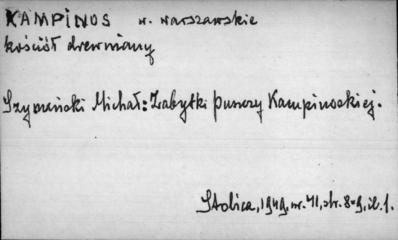 KAMPINOS w. warszawskie
kościół drewniany
Szymański Michał: Zabytki puszczy Kampinoskiej.
Stolica, 1949, nr. 41, str. 8-9, il. 1.